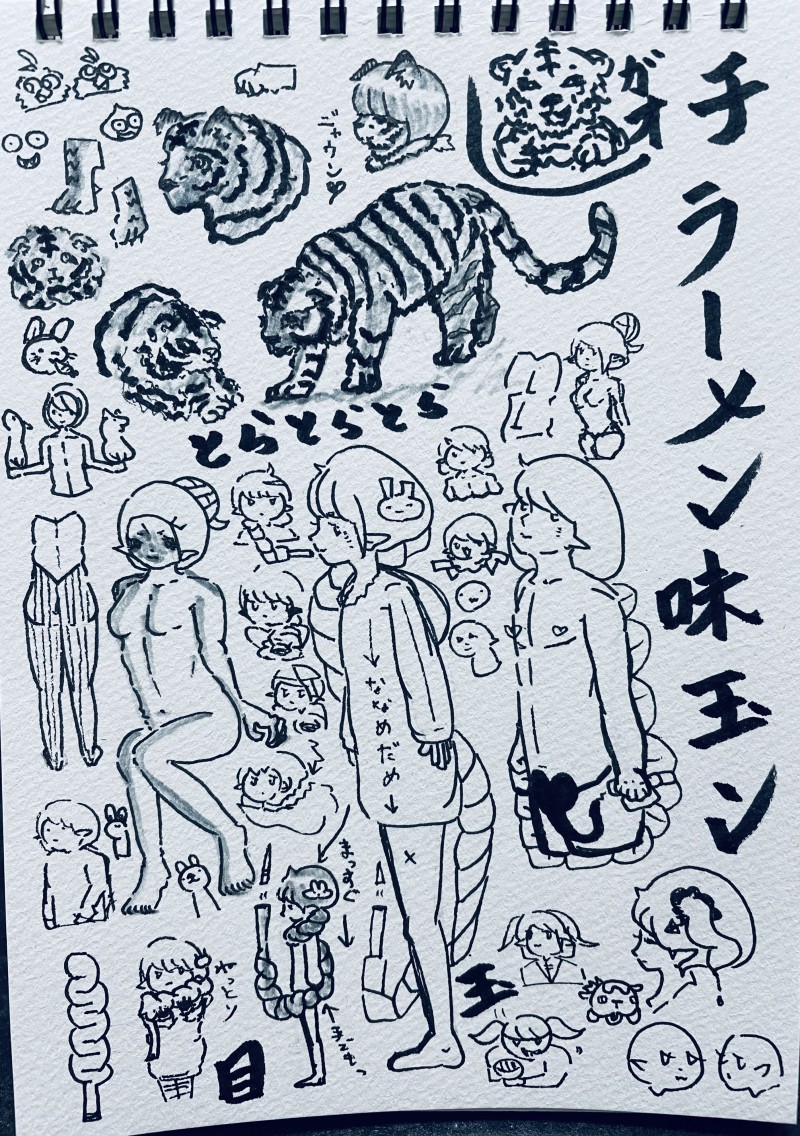 チラーメン味玉ン
ガオ
ニャウン♡
とらとらとら
↓ななめだめ↓
まっすぐ
ねっとり
玉
目